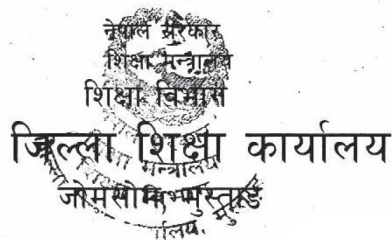 नेपाल सरकार
शिक्षा मन्त्रालय
शिक्षा विभाग
जिल्ला शिक्षा कार्यालय
जोमसोम, मुस्ताङ